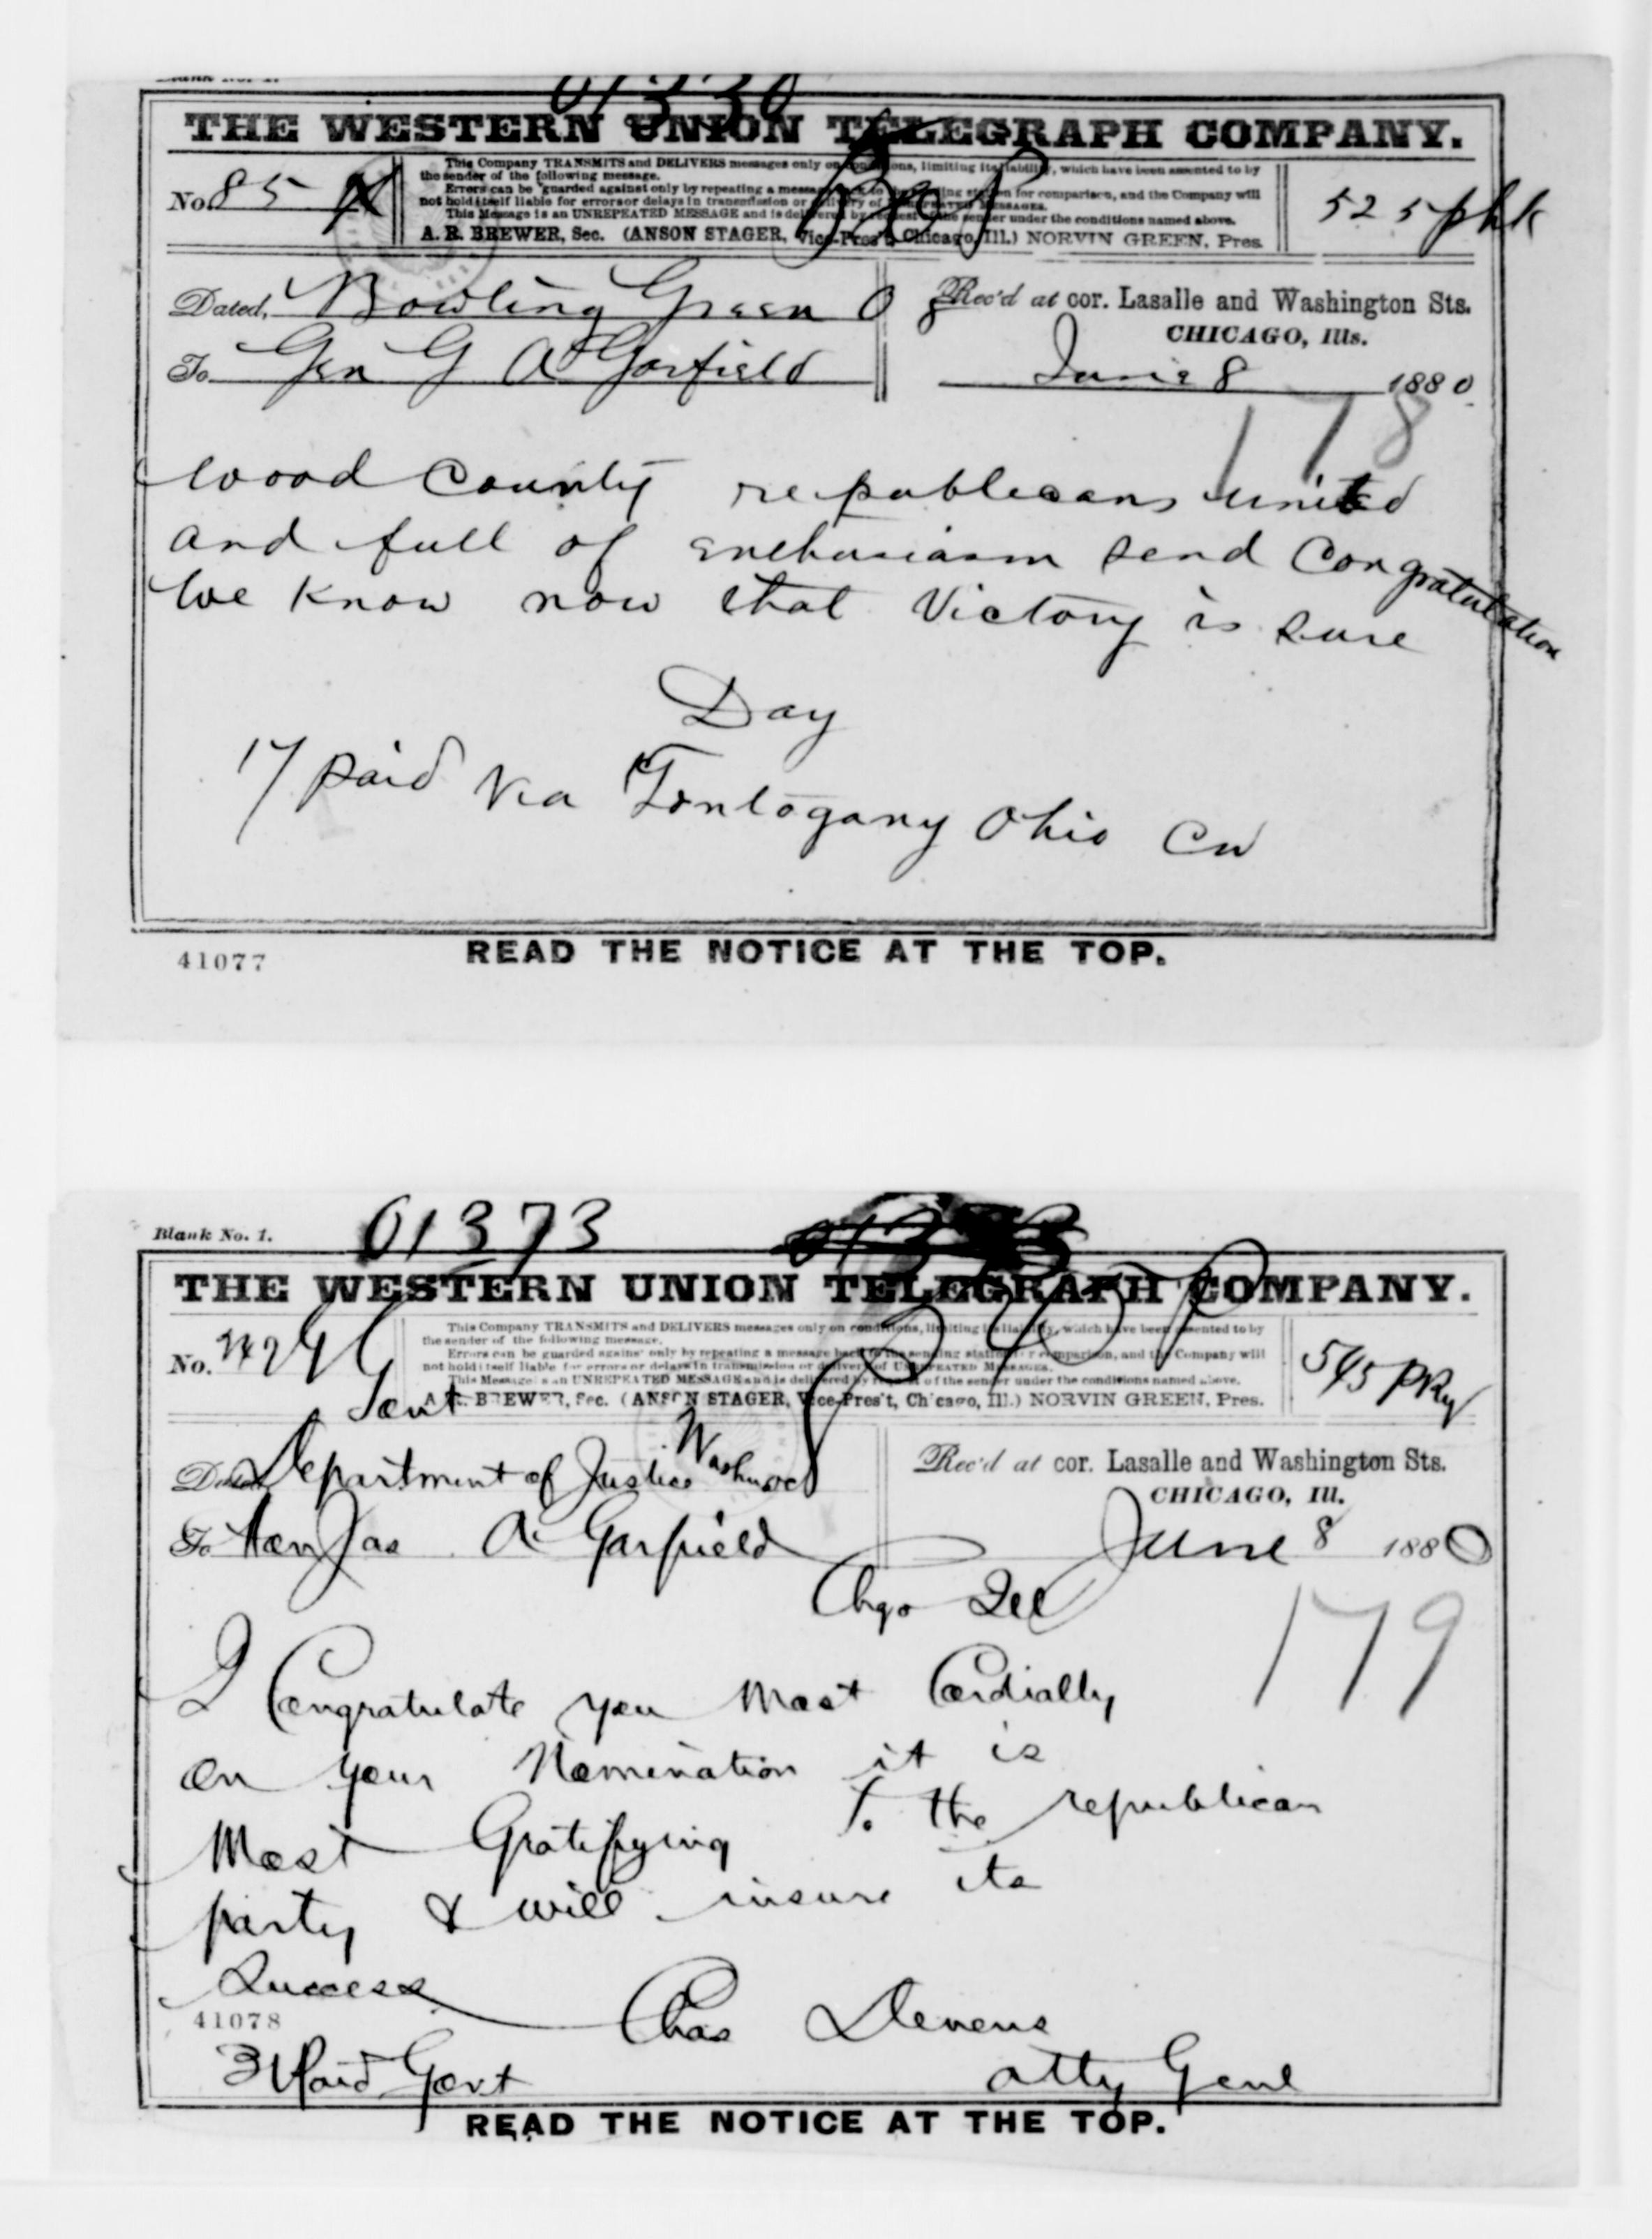 01330
THE WESTERN UNION TELEGRAPH COMPANY.
This Company TRANSMITS and DELIVERS messages only on conditions, limiting its liability, which have been assented to by
the sender of the following message.
Errors can be guarded against only by repeating a message back to the sending station for comparison, and the Company will
not hold itself liable for errors or delays in transmission or delivery of UNREPEATED MESSAGES.
This Message is an UNREPEATED MESSAGE and is delivered by request of the sender under the conditions named above.
A. R. BREWER, Sec. (ANSON STAGER, Vice-Pres't, Chicago, Ill.) NORVIN GREEN, Pres.
No. 85
525 p
Dated, Bowling Green O
Rec'd at cor. Lasalle and Washington Sts.
CHICAGO, Ills.
To Gen G A Garfield
June 8 1880
178
Wood County republicans united
and full of enthusiasm send Congratulation
We Know now that Victory is sure
Day
17 paid Via Tontogany Ohio
READ THE NOTICE AT THE TOP.
41077
Blank No. 1.
01373
THE WESTERN UNION TELEGRAPH COMPANY.
This Company TRANSMITS and DELIVERS messages only on conditions, limiting its liability, which have been assented to by
the sender of the following message.
Errors can be guarded against only by repeating a message back to the sending station for comparison, and the Company will
not hold itself liable for errors or delays in transmission or delivery of UNREPEATED MESSAGES.
This Message is an UNREPEATED MESSAGE and is delivered by request of the sender under the conditions named above.
A. R. BREWER, Sec. (ANSON STAGER, Vice-Pres't, Chicago, Ill.) NORVIN GREEN, Pres.
No.
545 P
Dated Department of Justice
Rec'd at cor. Lasalle and Washington Sts.
CHICAGO, Ill.
To Hon Jas A Garfield
June 8 1880
Chgo Ill
179
I Congratulate you Most Cordially
on your Nomination it is
Most Gratifying to the republican
party & will insure its
Success
Chas Devens
41078
Paid Govt
atty Genl
READ THE NOTICE AT THE TOP.